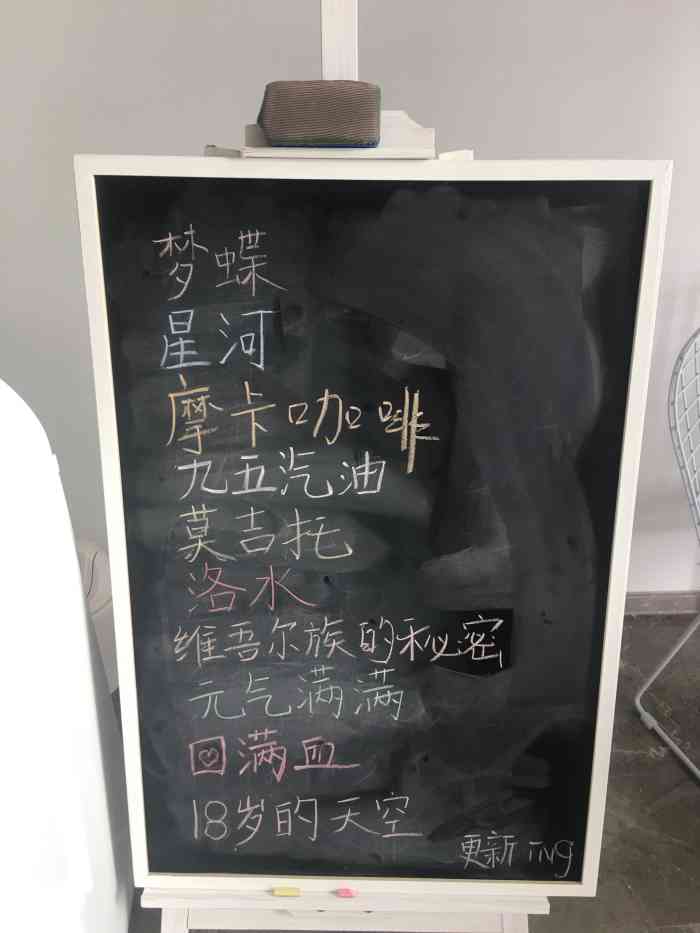 梦蝶
星河
摩卡咖啡
九五汽油
莫吉托
洛水
维吾尔族的秘密
元气满满
回满血
18岁的天空
更新ing